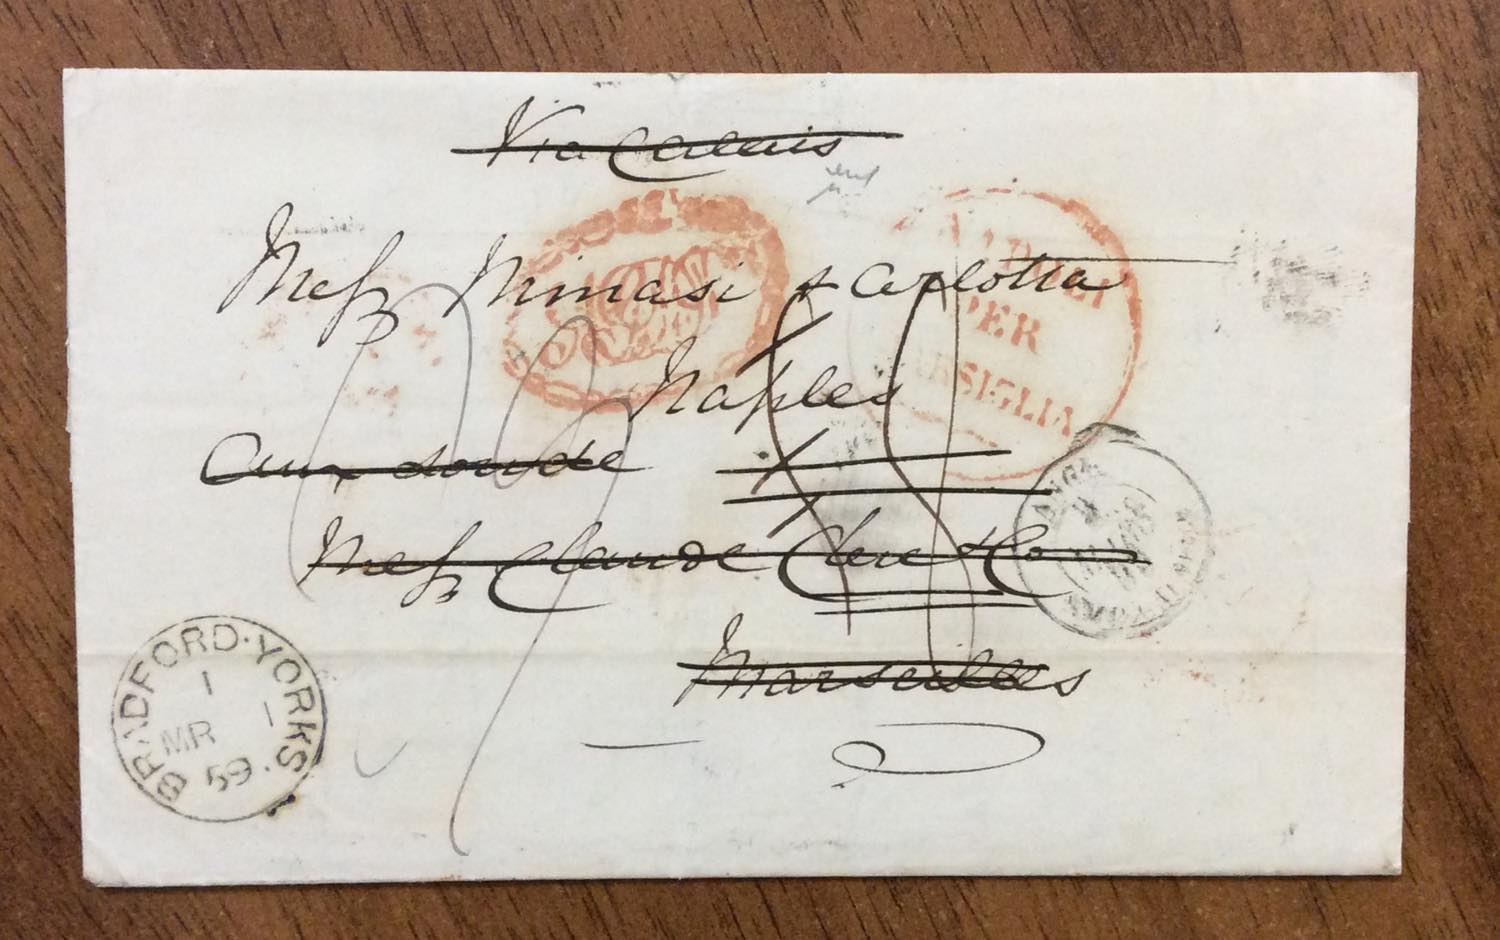 Via Calais
Mess Minasi & Arlotta
Naples
Aux soins de
Mess Claude Clerc & Co
Marseilles
PER
MARSIGLIA
ANGL.
BRADFORD·YORKS·
1
MR 1
59